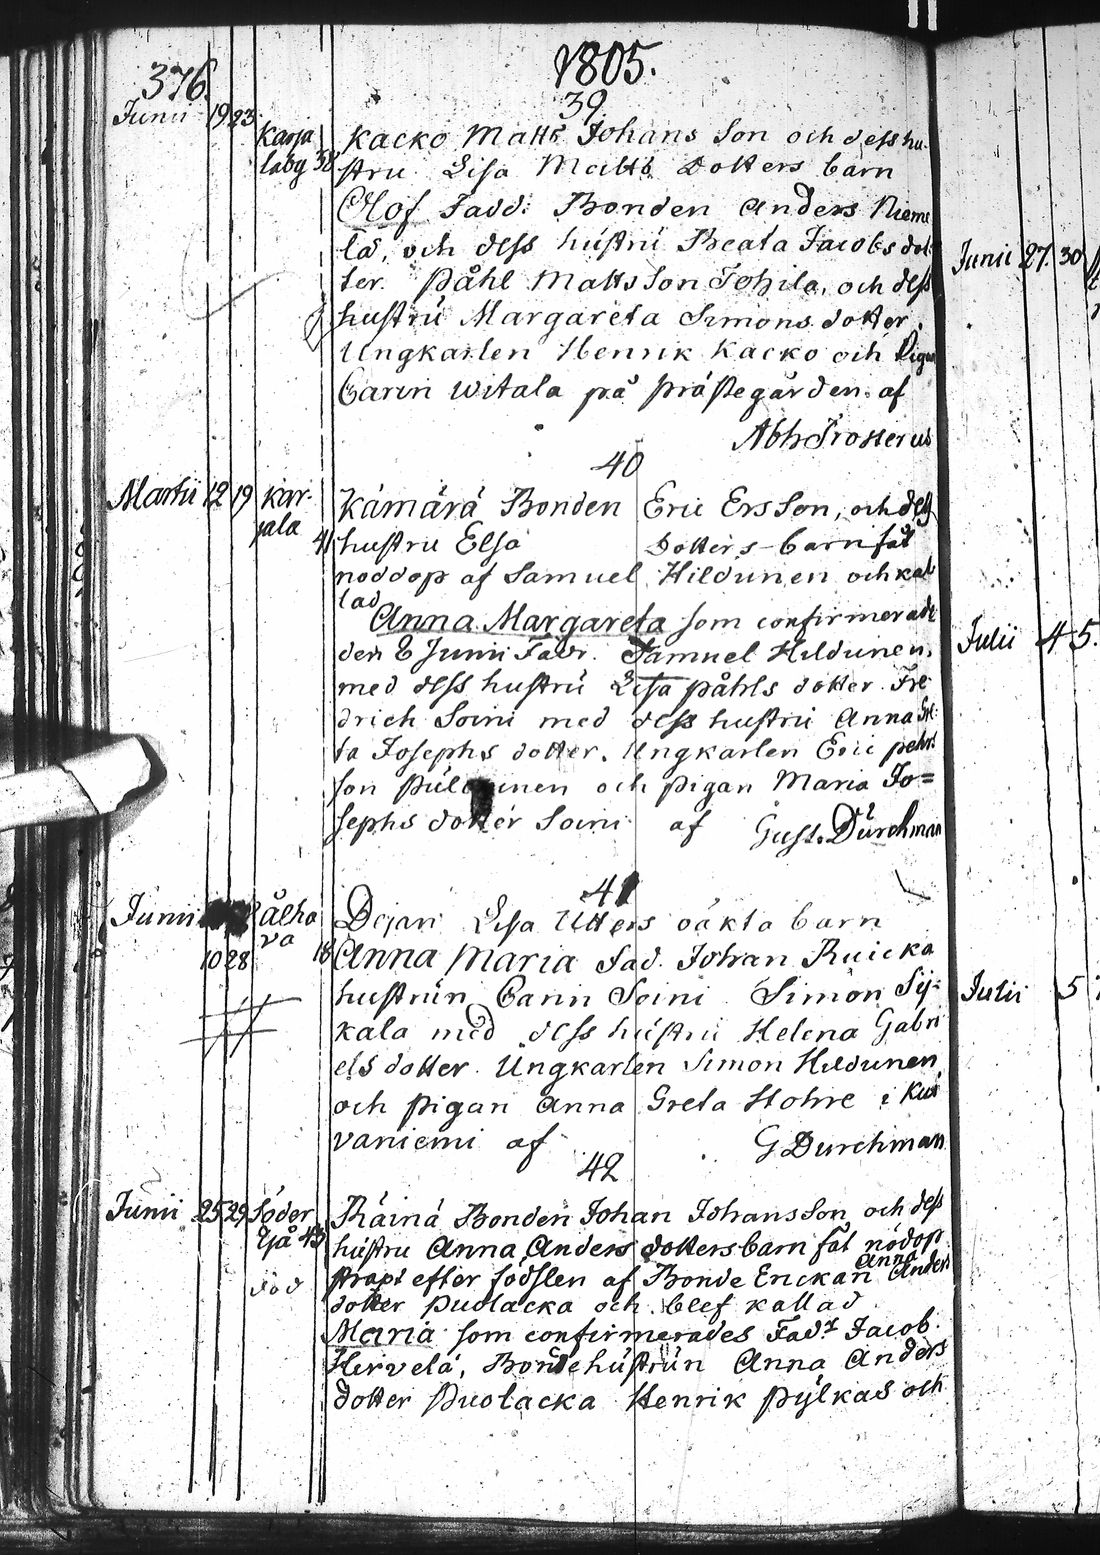 1805.
376.
39
Junii 19 23 Karja
laby 38
Kacko Matts Johans Son och dess hu-
stru Lisa Matts Dotters barn
Olof Fadd: Bonden Anders Nieme
lä, och dess hustru Beata Jacobs dot-
ter. Påhl Matts Son Tohila, och dess
hustru Margareta Simons dotter.
Ungkarlen Henrik Kacko och Pigan
Carin Witala på prästegården. af
Abh Frosterus
40
Martii 12 19 Kar-
jala 41
Kämärä Bonden Eric Ers Son, och dess
hustru Elsa Dotters barn fåt
noddop af Samuel Hildunen och kal
lad
Anna Margareta som confirmerade
den 8 Junii Fadr. Samuel Hildunen,
med dess hustru Lisa påhls dotter Fre
drich Soini med dess hustru Anna Gre
ta Josephs dotter. Ungkarlen Eric pehrs
son och pigan Maria Jo=
sephs dotter Soini af Gust. Durchman
41
Junii ålho
va
10 28 18
Dejan Lisa Utters oäkta barn
Anna Maria Fad. Johan Ruicka
hustrun Carin Soini Simon Sy=
kala med dess hustru Helena Gabri
els dotter. Ungkarlen Simon Hildunen
och pigan Anna Greta Hohre i Kui
vaniemi af G Durchman
42
Junii 25 29 Söder
43
död
Räinä Bonden Johan Johans Son och dess
hustru Anna Anders dotters barn fåt nödop
strapt efter födslen af Bonde Enckan Anna Anders
dotter Puolacka och blef kallad
Maria som confirmerades Fadr Jacob
Hirvelä, Bondehustrun Anna Anders
dotter Puolacka Henrik Pylkas och
Junii 27. 30
Julii 4 5.
Julii 5